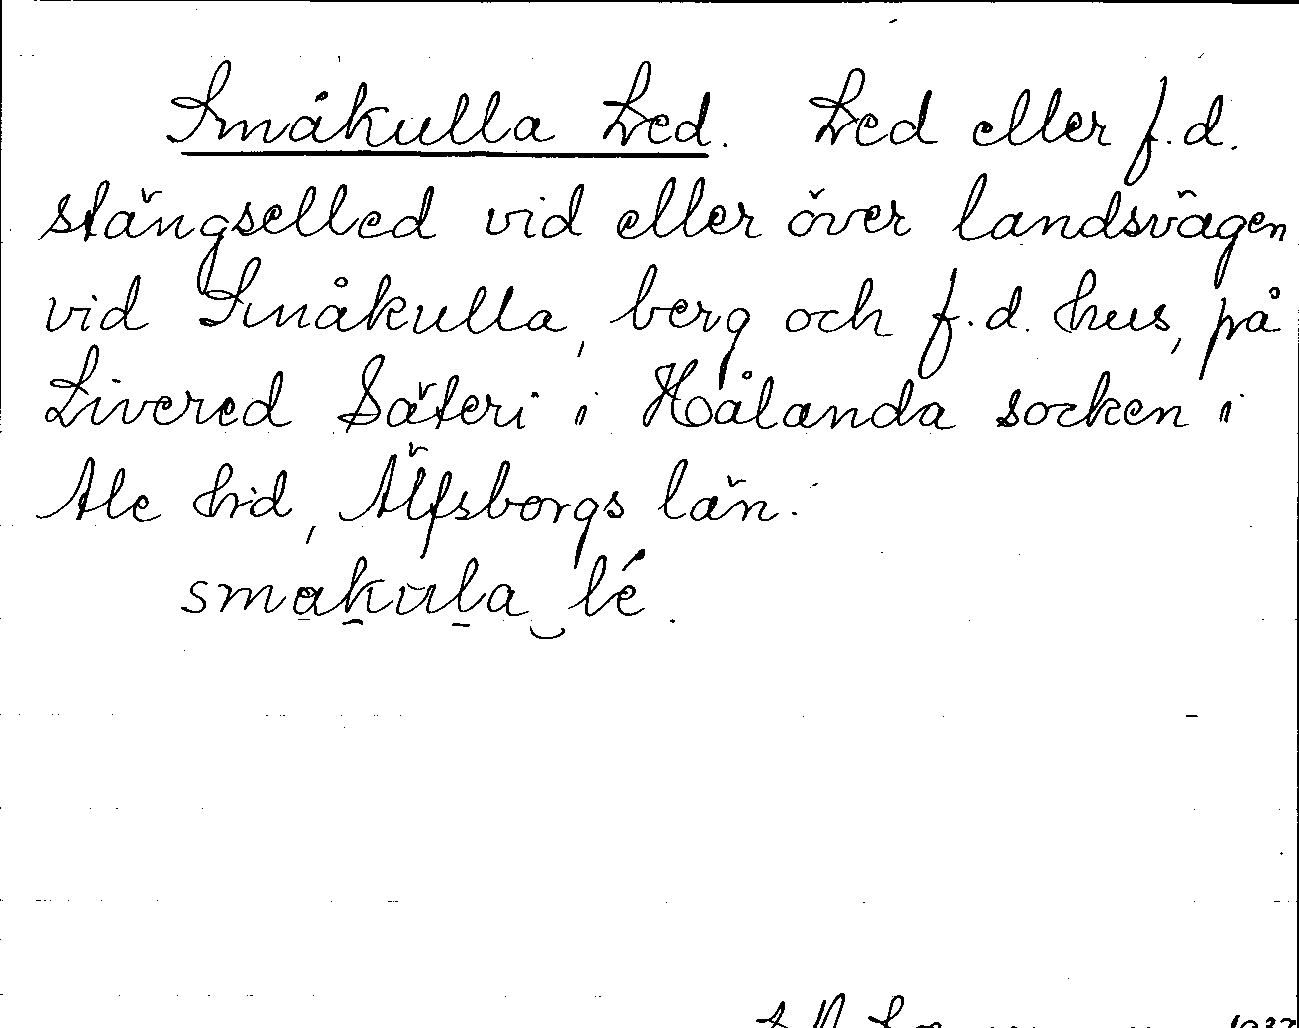 Småkulla Led. Led eller f.d.
stängselled vid eller över landsvägen
vid Småkulla, berg och f.d. hus, på
Livered Säteri i Hålanda socken i
Ale hrd, Älfsborgs län.
smakula lé.